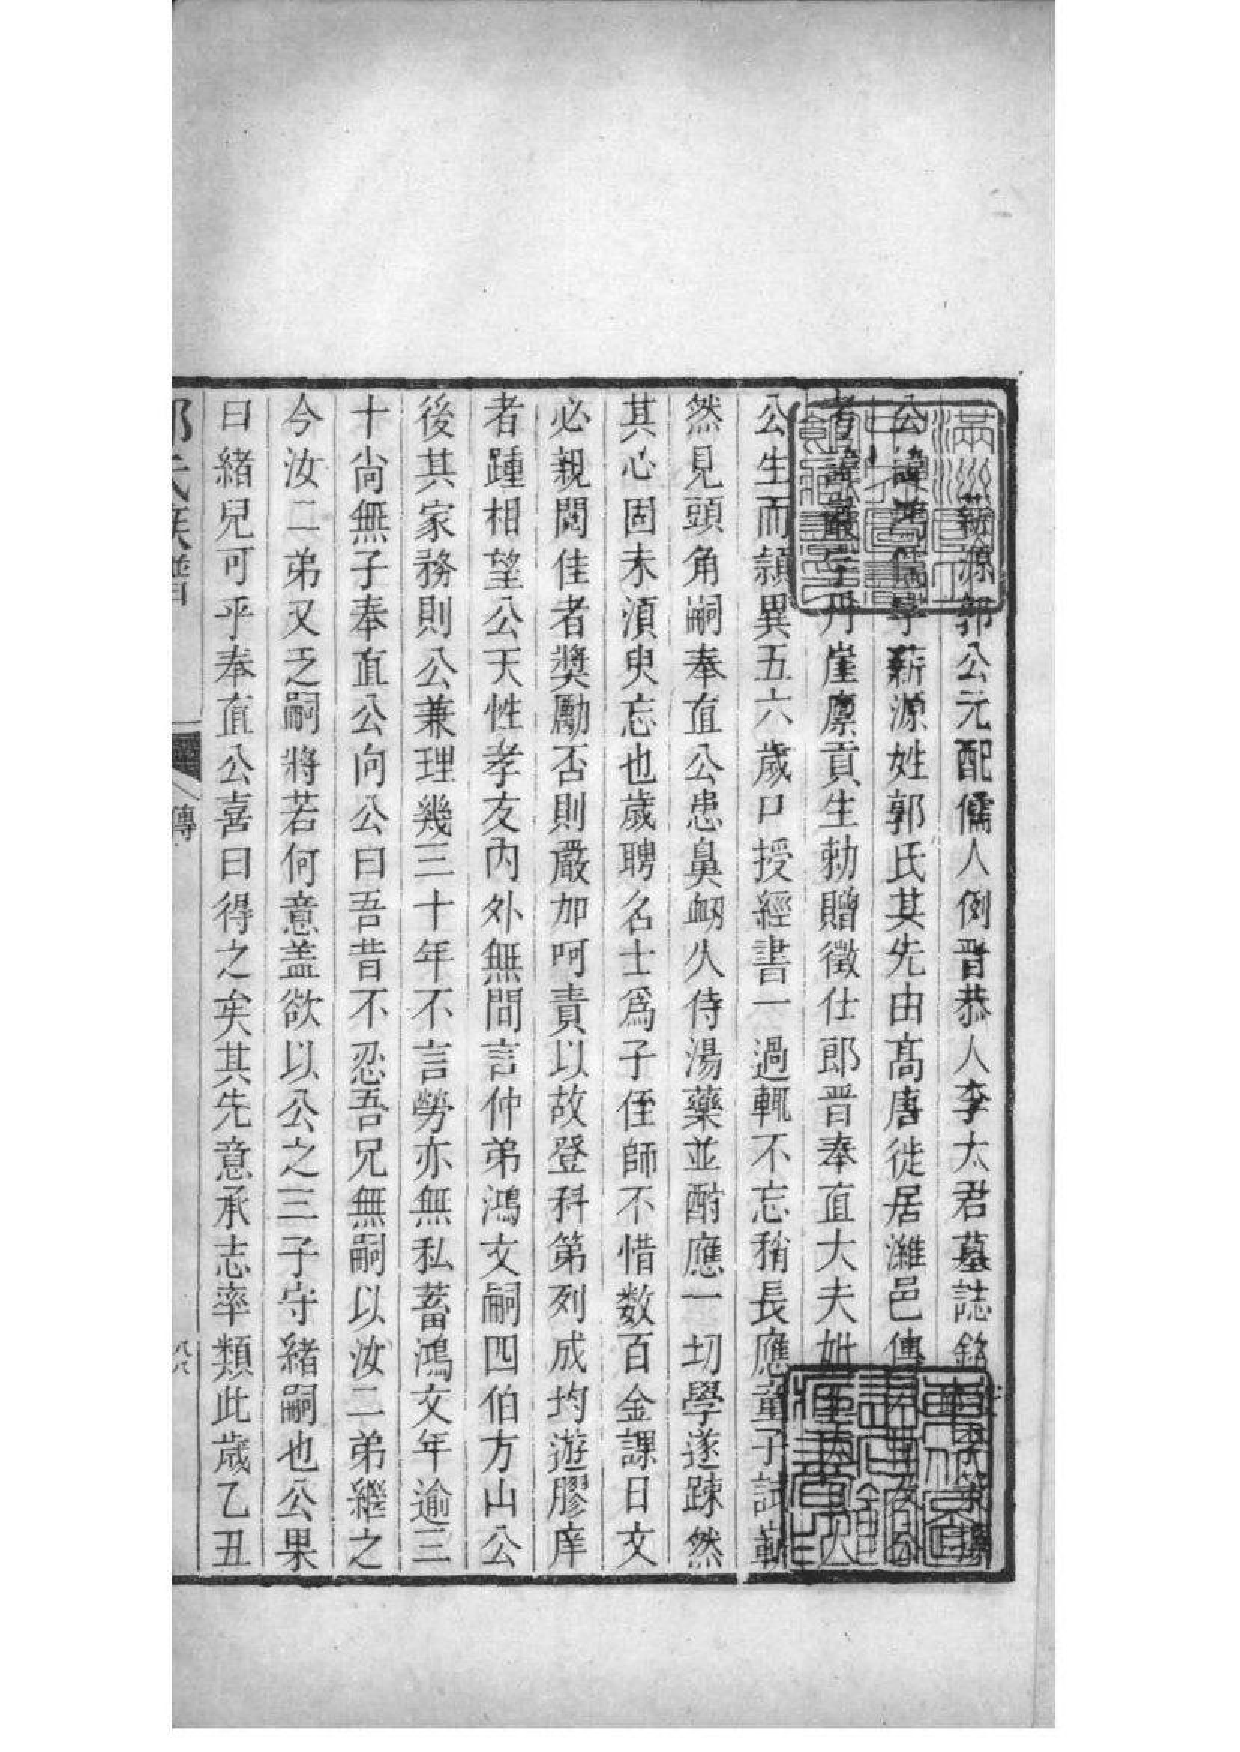 薪源郭公元配儒人例晋恭人李太君墓誌銘
公諱 字薪源姓郭氏其先由高唐徙居濰邑傳
考諱 字丹崖廪貢生勅贈徵仕郎晋奉直大夫妣
公生而頴異五六歲口授經書一過輒不忘稍長應童子試嶄
然見頭角嗣奉直公患鼻衂久侍湯藥並酧應一切學遂踈然
其心固未湏臾忘也歲聘名士爲子侄師不惜数百金課日文
必親閱佳者奬勵否則嚴加呵責以故登科第列成均遊膠庠
者踵相望公天性孝友內外無間言仲弟鴻文嗣四伯方山公
後其家務則公兼理幾三十年不言勞亦無私蓄鴻文年逾三
十尙無子奉直公向公曰吾昔不忍吾兄無嗣以汝二弟繼之
今汝二弟又乏嗣將若何意盖欲以公之三子守緒嗣也公果
曰緒兒可乎奉直公喜曰得之矣其先意承志率類此歲乙丑
郭氏族譜
傳